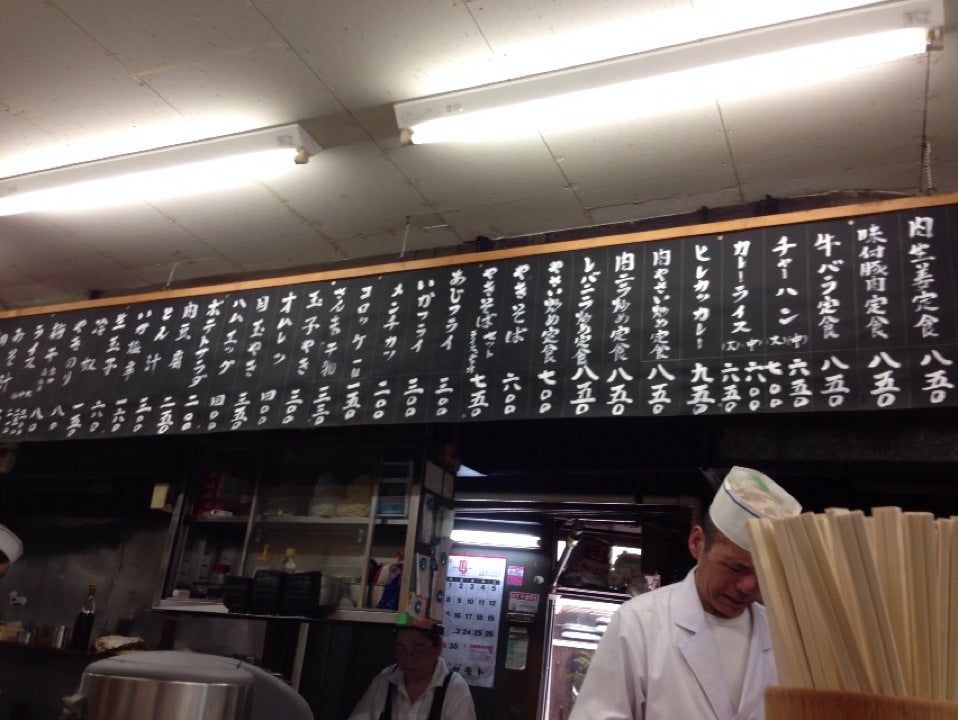 肉生姜定食 八五〇
味付豚肉定食 八五〇
牛バラ定食 八五〇
チャーハン (中) 六五〇 (大) 七〇〇
カレーライス (中) 六〇〇 (大) 六五〇
ヒレカツカレー 九五〇
肉やさい炒め定食 八五〇
肉ニラ炒め定食 八五〇
レバニラ炒め定食 八五〇
やさい炒め定食 七〇〇
やきそば 六〇〇
やきそばセット 七五〇
あじフライ 三〇〇
いかフライ 三〇〇
メンチカツ 二〇〇
コロッケ 一五〇
さんま干物 三三〇
玉子やき 三〇〇
オムレツ 三五〇
目玉やき 四〇〇
ハムエッグ 三五〇
ポテトサラダ 四〇〇
肉豆腐 二〇〇
とん汁 二五〇
いか塩辛 三〇〇
生玉子 一六〇
冷奴 六〇
やきのり 一五〇
ライス
4